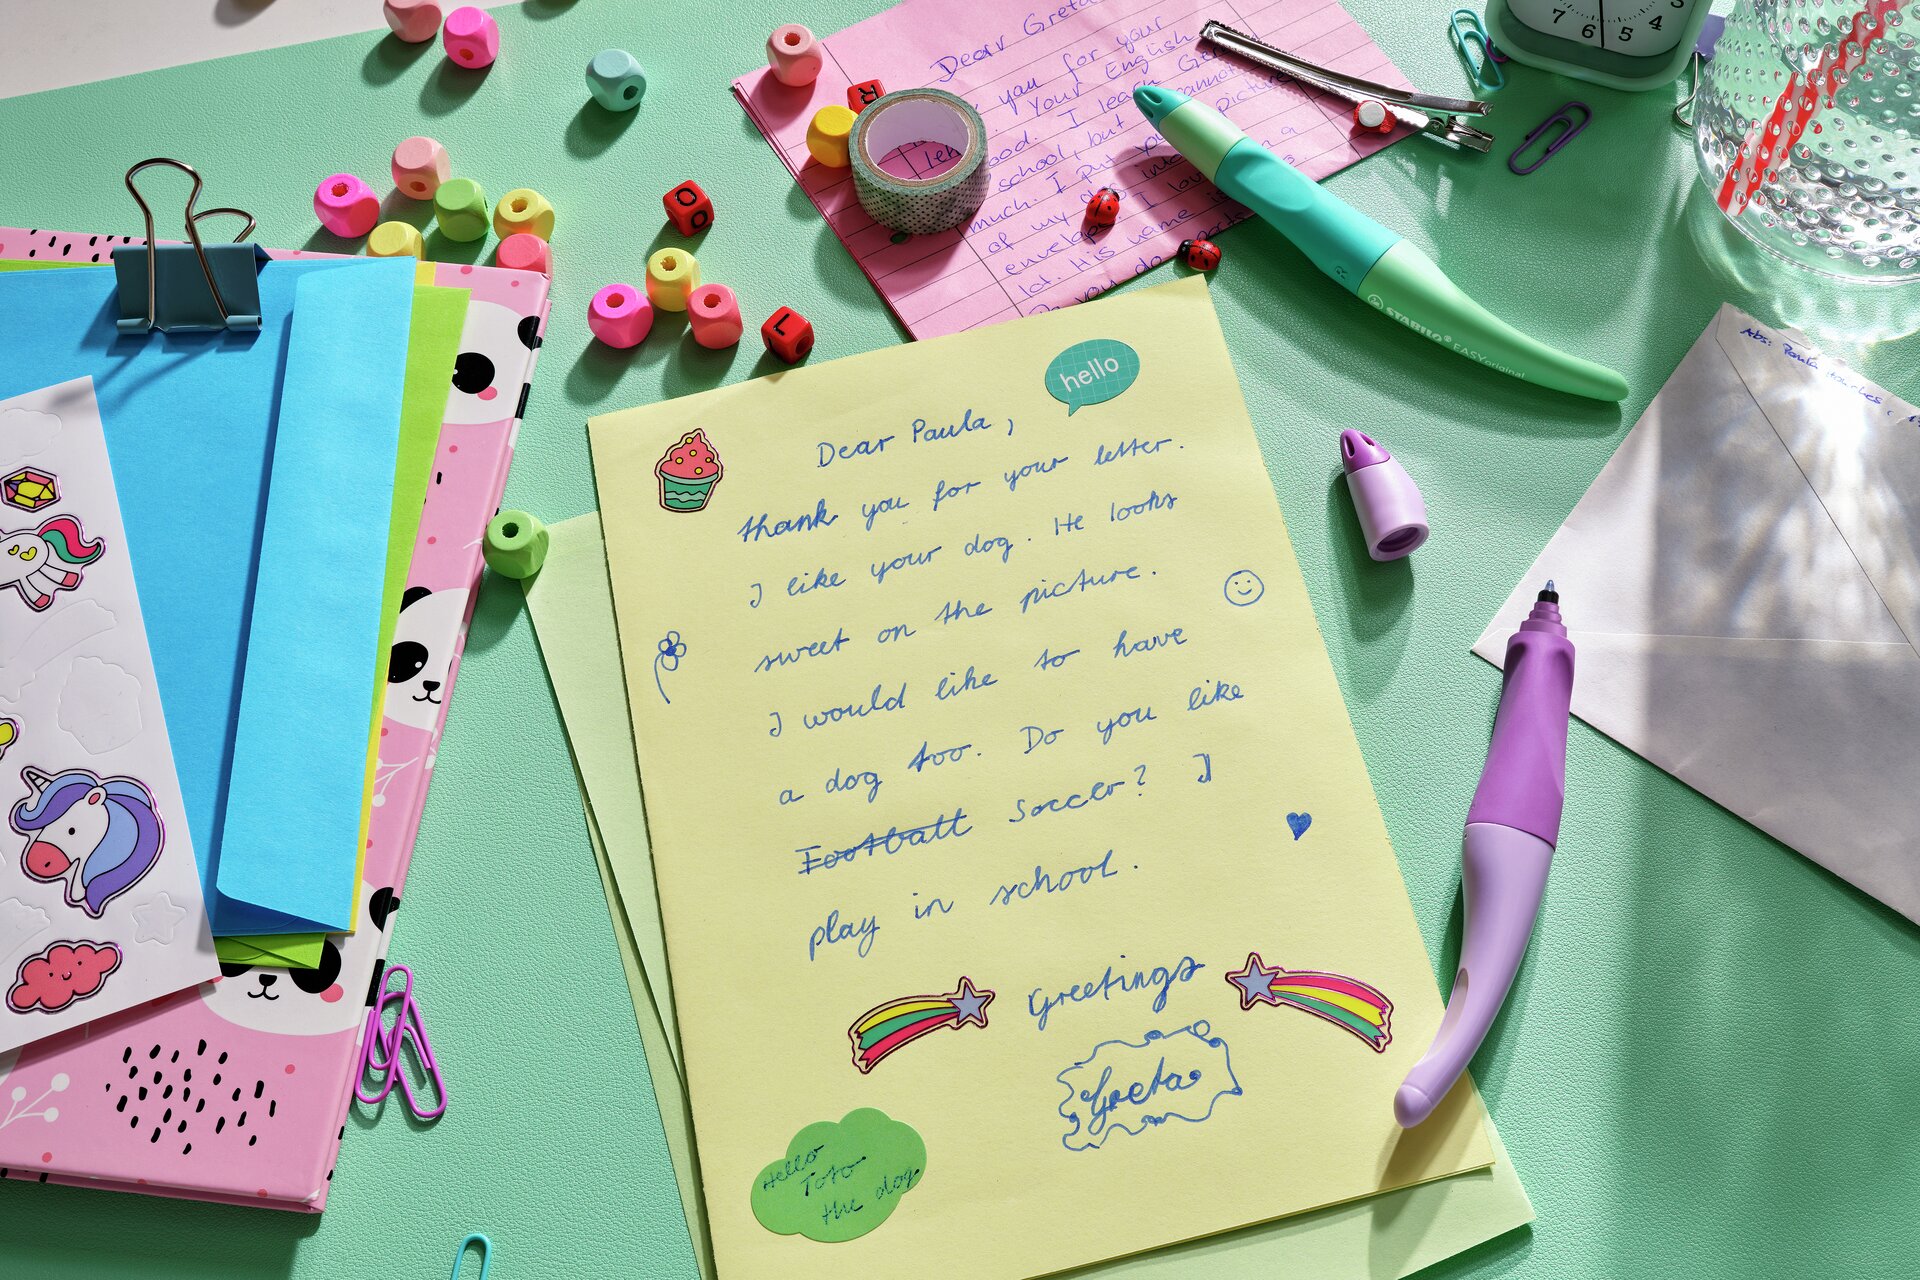 Dear Greta
you for your
Your English
good. I learn Ge
school, but cannot
much. I put your picture
of my dog into a
envelope. I lov
lot. His name is
Do you do
R
O
L
7 6 5 4
STABILO® EASYoriginal
Abs: Paula
hello
Dear Paula,
thank you for your letter.
I like your dog. He looks
sweet on the picture.
I would like to have
a dog too. Do you like
Football Soccer? I
play in school.
Greetings
Greta
Hello
Toto
the dog